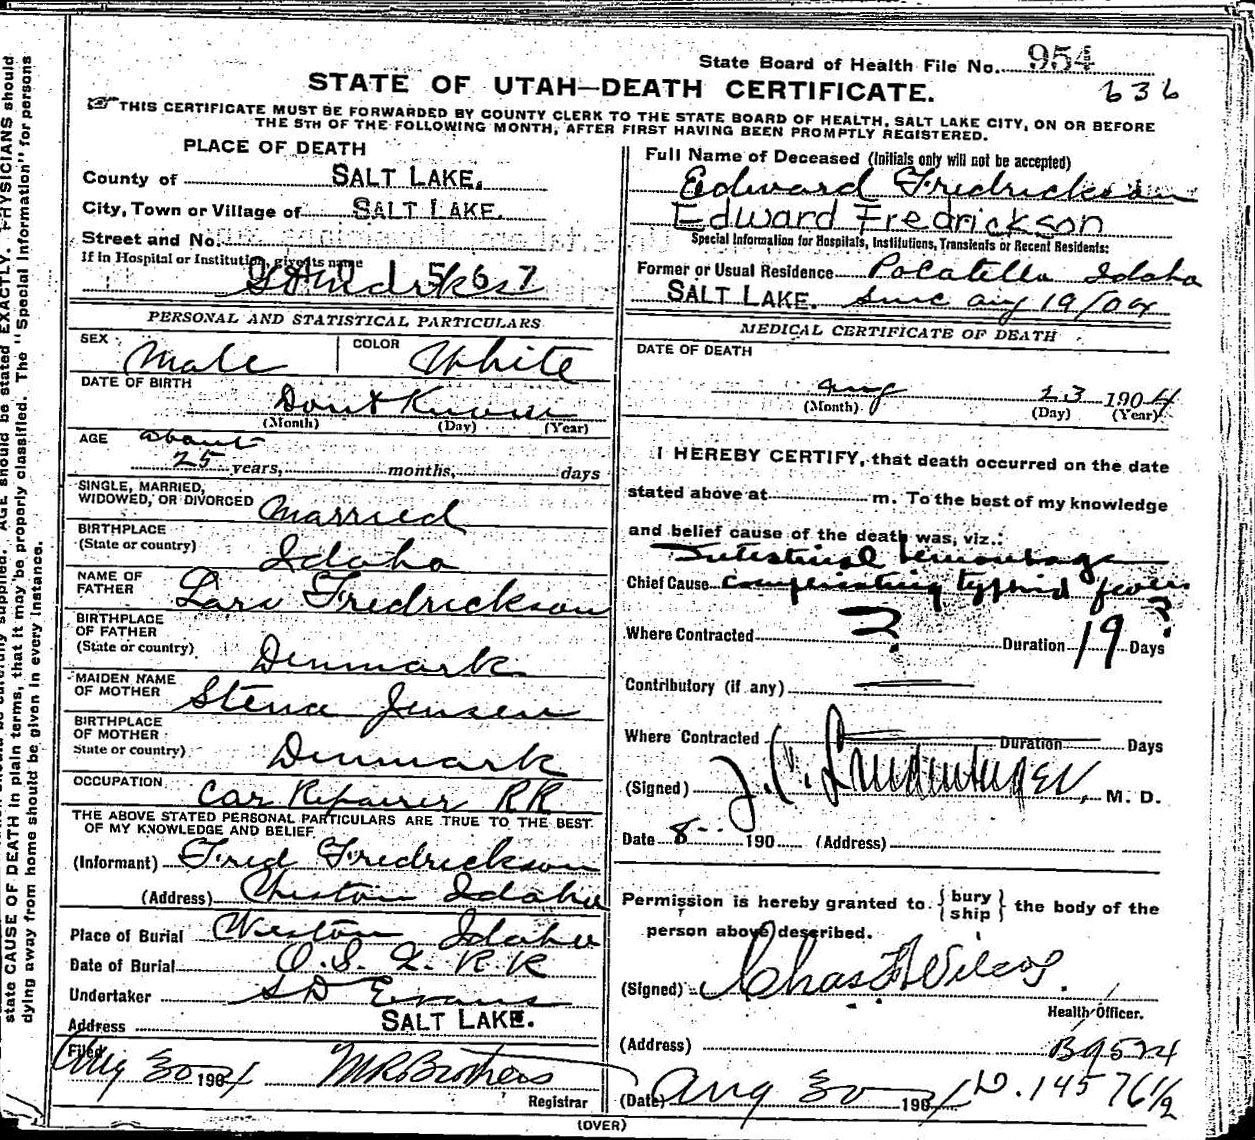 state CAUSE OF DEATH in plain terms, that it may be properly classified. The "Special Information" for persons
dying away from home should be given in every instance.
supplied. AGE should be stated EXACTLY. PHYSICIANS should
State Board of Health File No. 954
STATE OF UTAH—DEATH CERTIFICATE.
636
THIS CERTIFICATE MUST BE FORWARDED BY COUNTY CLERK TO THE STATE BOARD OF HEALTH, SALT LAKE CITY, ON OR BEFORE
THE 5TH OF THE FOLLOWING MONTH, AFTER FIRST HAVING BEEN PROMPTLY REGISTERED.
PLACE OF DEATH
County of SALT LAKE.
City, Town or Village of SALT LAKE.
Street and No.
If in Hospital or Institution, give its name
567
PERSONAL AND STATISTICAL PARTICULARS
SEX Male COLOR White
DATE OF BIRTH Dont Know
(Month) (Day) (Year)
AGE about
25 years, months, days
SINGLE, MARRIED,
WIDOWED, OR DIVORCED Married
BIRTHPLACE
(State or country) Idaho
NAME OF
FATHER Lars Fredrickson
BIRTHPLACE
OF FATHER
(State or country) Denmark
MAIDEN NAME
OF MOTHER Stena Jensen
BIRTHPLACE
OF MOTHER
State or country) Denmark
OCCUPATION Car Repairer RR
THE ABOVE STATED PERSONAL PARTICULARS ARE TRUE TO THE BEST
OF MY KNOWLEDGE AND BELIEF
(Informant) Fred Fredrickson
(Address) Weston Idaho
Place of Burial Weston Idaho
Date of Burial O.S.L. RR
Undertaker S D Evans
Address SALT LAKE.
Filed Aug 30 1904 M R Brothers
Registrar
Full Name of Deceased (Initials only will not be accepted)
Edward Fredrickson
Edward Fredrickson
Special Information for Hospitals, Institutions, Transients or Recent Residents:
Former or Usual Residence Pocatello Idaho
SALT LAKE. Since aug 19/04
MEDICAL CERTIFICATE OF DEATH
DATE OF DEATH
aug 23 1904
(Month) (Day) (Year)
I HEREBY CERTIFY, that death occurred on the date
stated above at m. To the best of my knowledge
and belief cause of the death was, viz.:
Intestinal hemorrhage
Chief Cause typhoid fever
Where Contracted ? Duration 19 ? Days
Contributory (if any)
Where Contracted Duration Days
(Signed) J. C. M. D.
Date 8 190 (Address)
Permission is hereby granted to {bury
ship} the body of the
person above described.
(Signed) Chas F Wilcox.
Health Officer.
(Address) B9524
(Date) Aug 30 1904 D. 145 76½
(OVER)